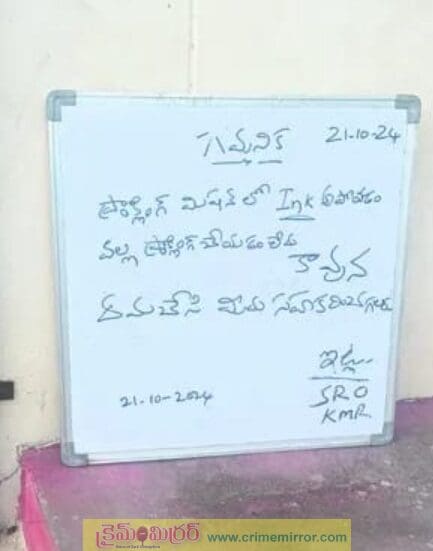 గమనిక 21-10-24
ఫ్రాంక్లింగ్ మిషన్ లో Ink అవోవడం
వల్ల ఫ్రాంక్లింగ్ చేయడం లేదు
కావున
దయచేసి మీరు సహకరించగలరు
ఇట్లు
21-10-2024
SRO
KMR.
క్రైమ్ మిర్రర్
www.crimemirror.com